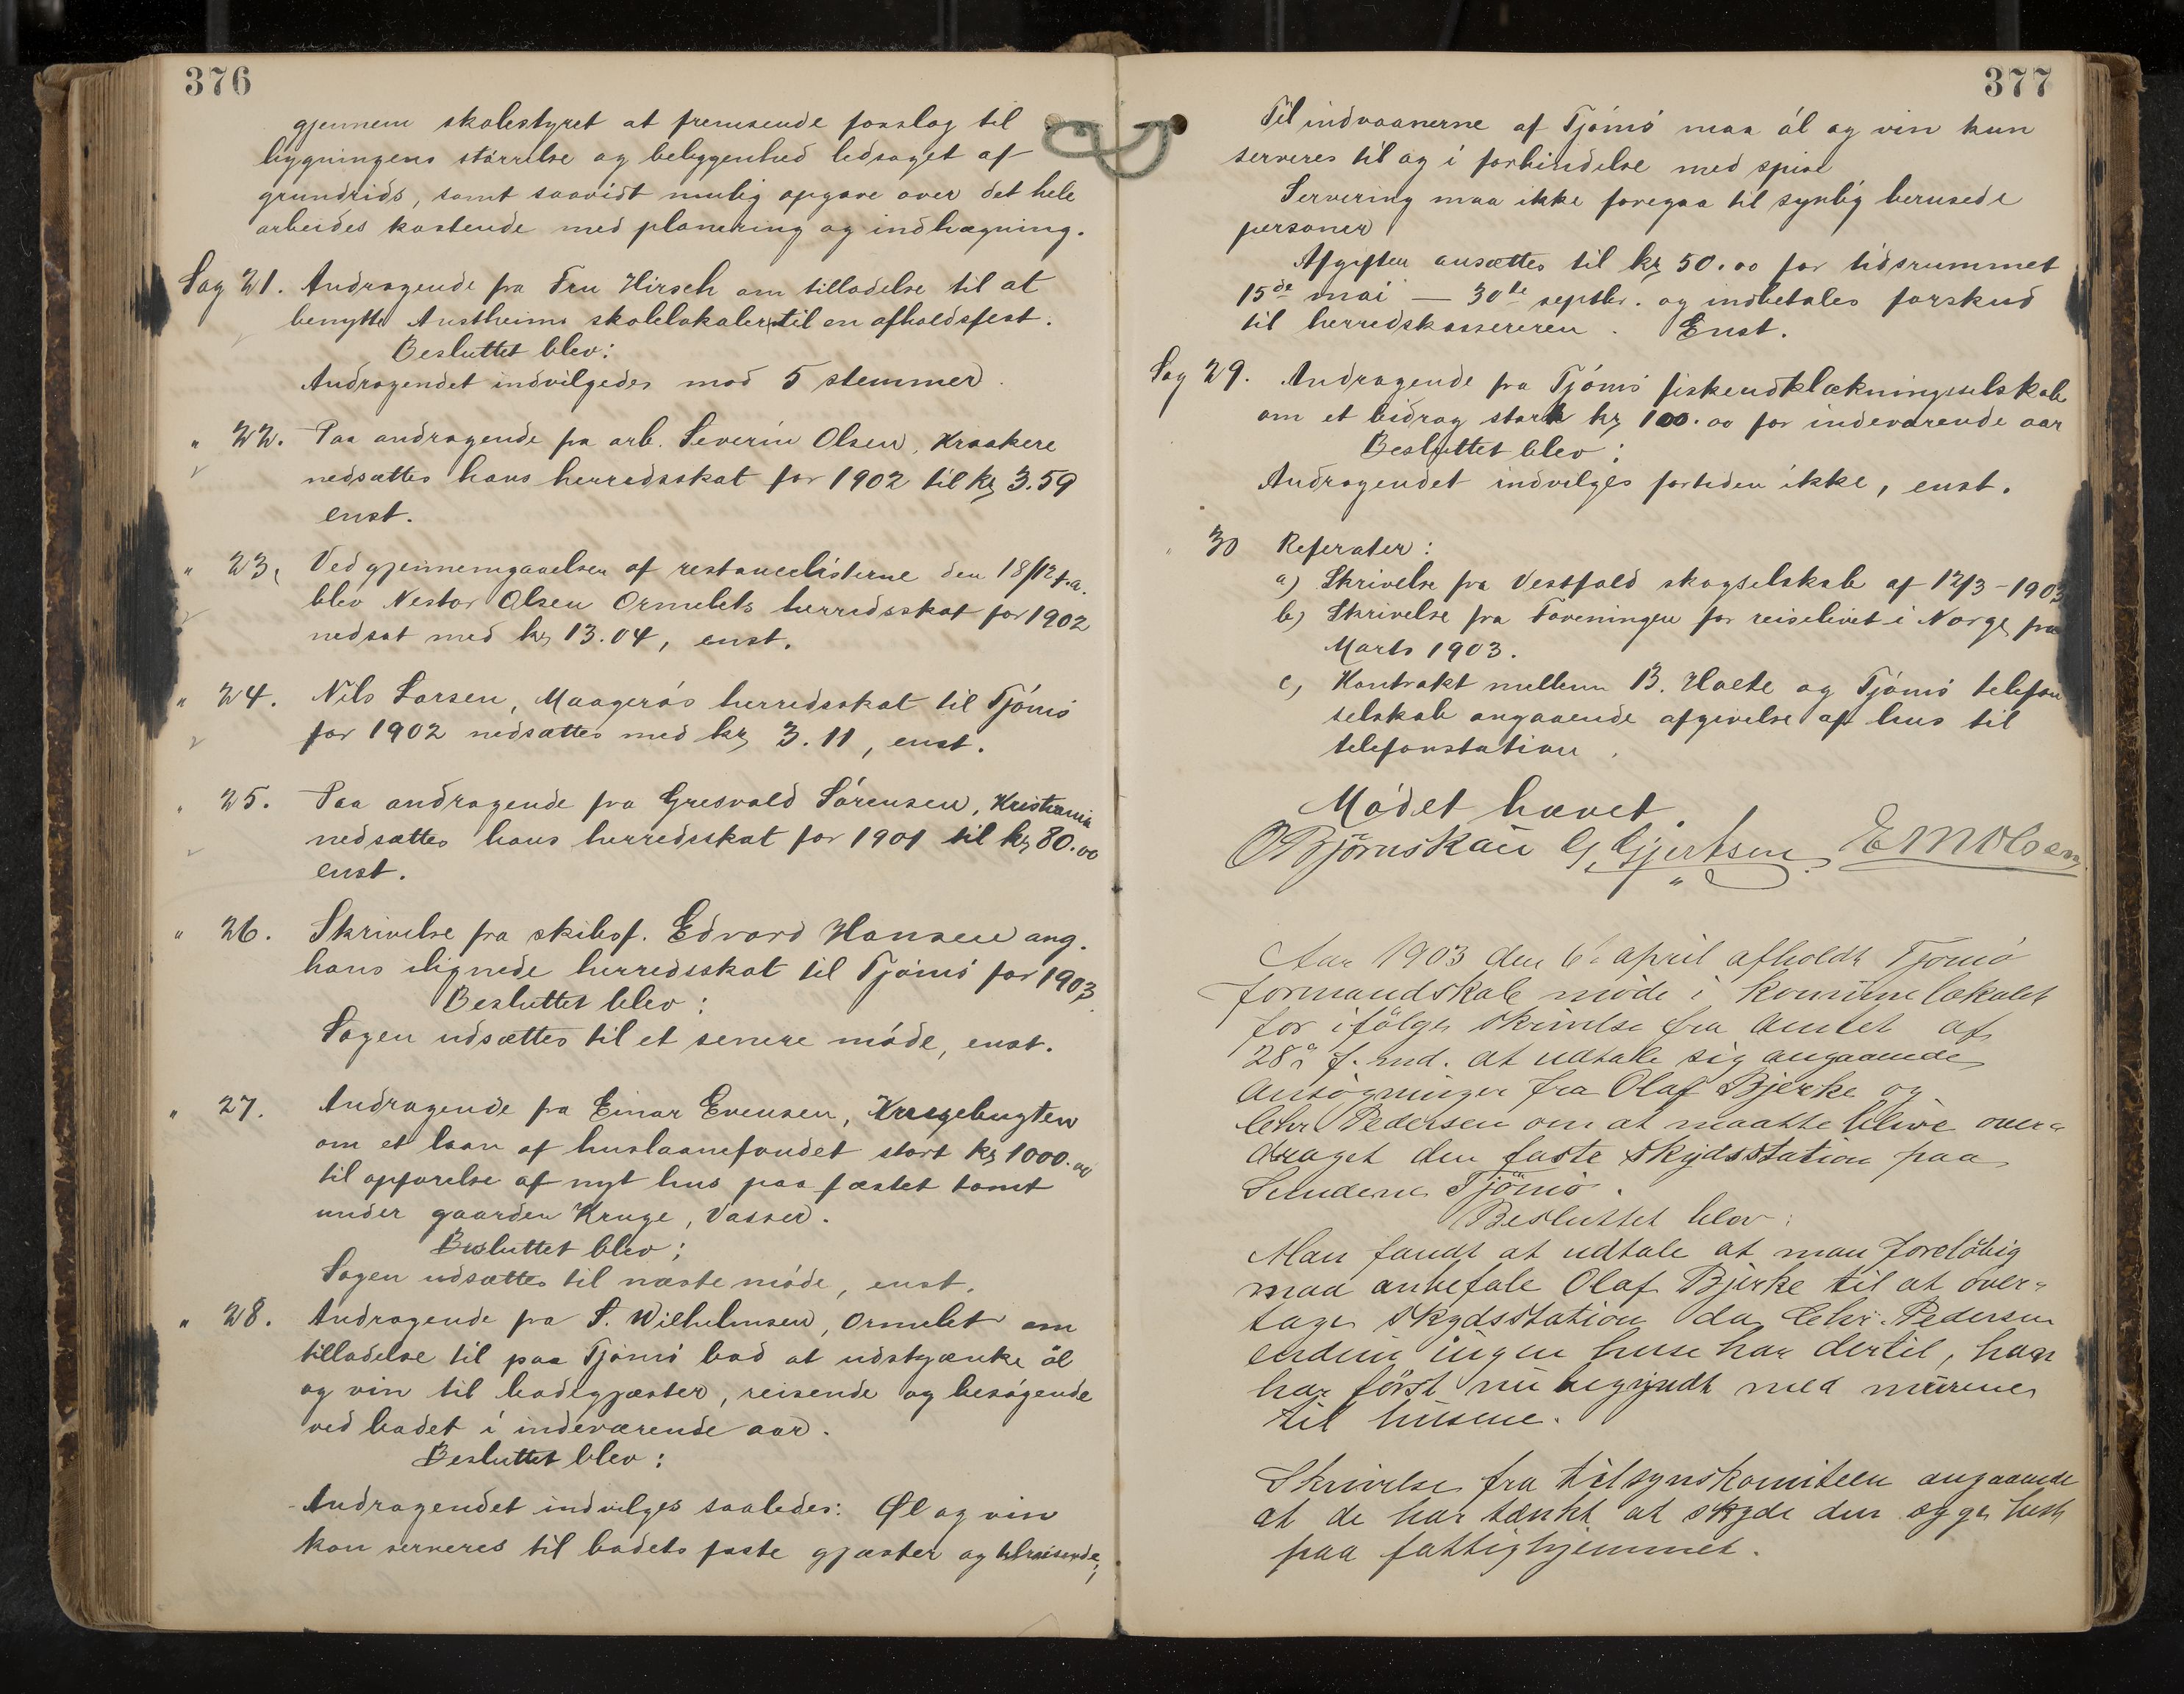 376
gjennem skolestyret at fremsende forslag til
bygningens størrelse og beliggenhed ledsaget af
grundrids, samt saavidt mulig opgave over det hele
arbeides kostende med planering og indhægning.
Sag 21. Andragende fra Fru Hirsch om tilladelse til at
benytte Austheims skolelokaler til en afholdsfest.
Besluttet blev:
Andragendet indvilgedes mod 5 stemmer.
" 22. Paa andragende fra arb. Severin Olsen, Kraakere
nedsættes hans herredsskat for 1902 til kr 3.59
enst.
" 23. Ved gjennemgaaelsen af restancelisterne den 18/12 f.a.
blev Nestor Olsen Ormelets herredsskat for 1902
nedsat med kr 13.04, enst.
" 24. Nils Larsen, Maagerøs herredsskat til Tjømø
for 1902 nedsættes med kr 3.11, enst.
" 25. Paa andragende fra Gresvald Sørensen, Kristiania
nedsættes hans herredsskat for 1901 til kr 80.00
enst.
" 26. Skrivelse fra skibsf. Edvard Hansen ang.
hans ilignede herredsskat til Tjømø for 1903
Besluttet blev:
Sagen udsættes til et senere møde, enst.
" 27. Andragende fra Einar Evensen, Krugebugten
om et laan af huslaanefondet stort kr 1000.00
til opførelse af nyt hus paa fæstet tomt
under gaarden Kruge, Vasser.
Besluttet blev:
Sagen udsættes til næste møde, enst.
" 28. Andragende fra S. Wilhelmsen, Ormelet om
tilladelse til paa Tjømø bad at udskjænke øl
og vin til badegjæster, reisende og besøgende
ved badet i indeværende aar.
Besluttet blev:
Andragendet indvilges saaledes: Øl og vin
kan serveres til badets faste gjæster og tilreisende;
377
Til indvaanerne af Tjømø maa øl og vin kun
serveres til og i forbindelse med spise
Servering maa ikke foregaa til synlig berusede
personer
Afgiften ansættes til kr 50.00 for tidsrummet
15de mai — 30te septbr. og indbetales forskud
til herredskassereren. Enst.
Sag 29. Andragende fra Tjømø fiskeudklækningsselskab
om et bidrag stort kr 100.00 for indeværende aar
Besluttet blev:
Andragendet indvilges fortiden ikke, enst.
" 30 Referater:
a) Skrivelse fra Vestfold skogselskab af 12/3-1903
b) Skrivelse fra Foreningen for reiselivet i Norge fra
Marts 1903.
c) Kontrakt mellem B. Holte og Tjømø telefon
selskab angaaende afgivelse af hus til
telefonstation.
Mødet hævet.
O Bjørnskau G. Gjertsen E M Olsen
Aar 1903 den 6te april afholdt Tjømø
formandskab møde i kommunelokalet
for ifølge skrivelse fra amtet af
28de f. md. at udtale sig angaaende
ansøgninger fra Olaf Bjerke og
Chr Pedersen om at maatte blive over-
draget den faste skydsstation paa
Sundene Tjømø.
Besluttet blev:
Man fandt at udtale at man foreløbig
maa anbefale Olaf Bjerke til at over-
tage skydsstation da Chr. Pedersen
endnu ingen huse har dertil, han
har først nu begyndt med murene
til husene.
Skrivelse fra tilsynskomiteen angaaende
at de har tænkt at skyde den ogge hest
paa fattighjemmet.